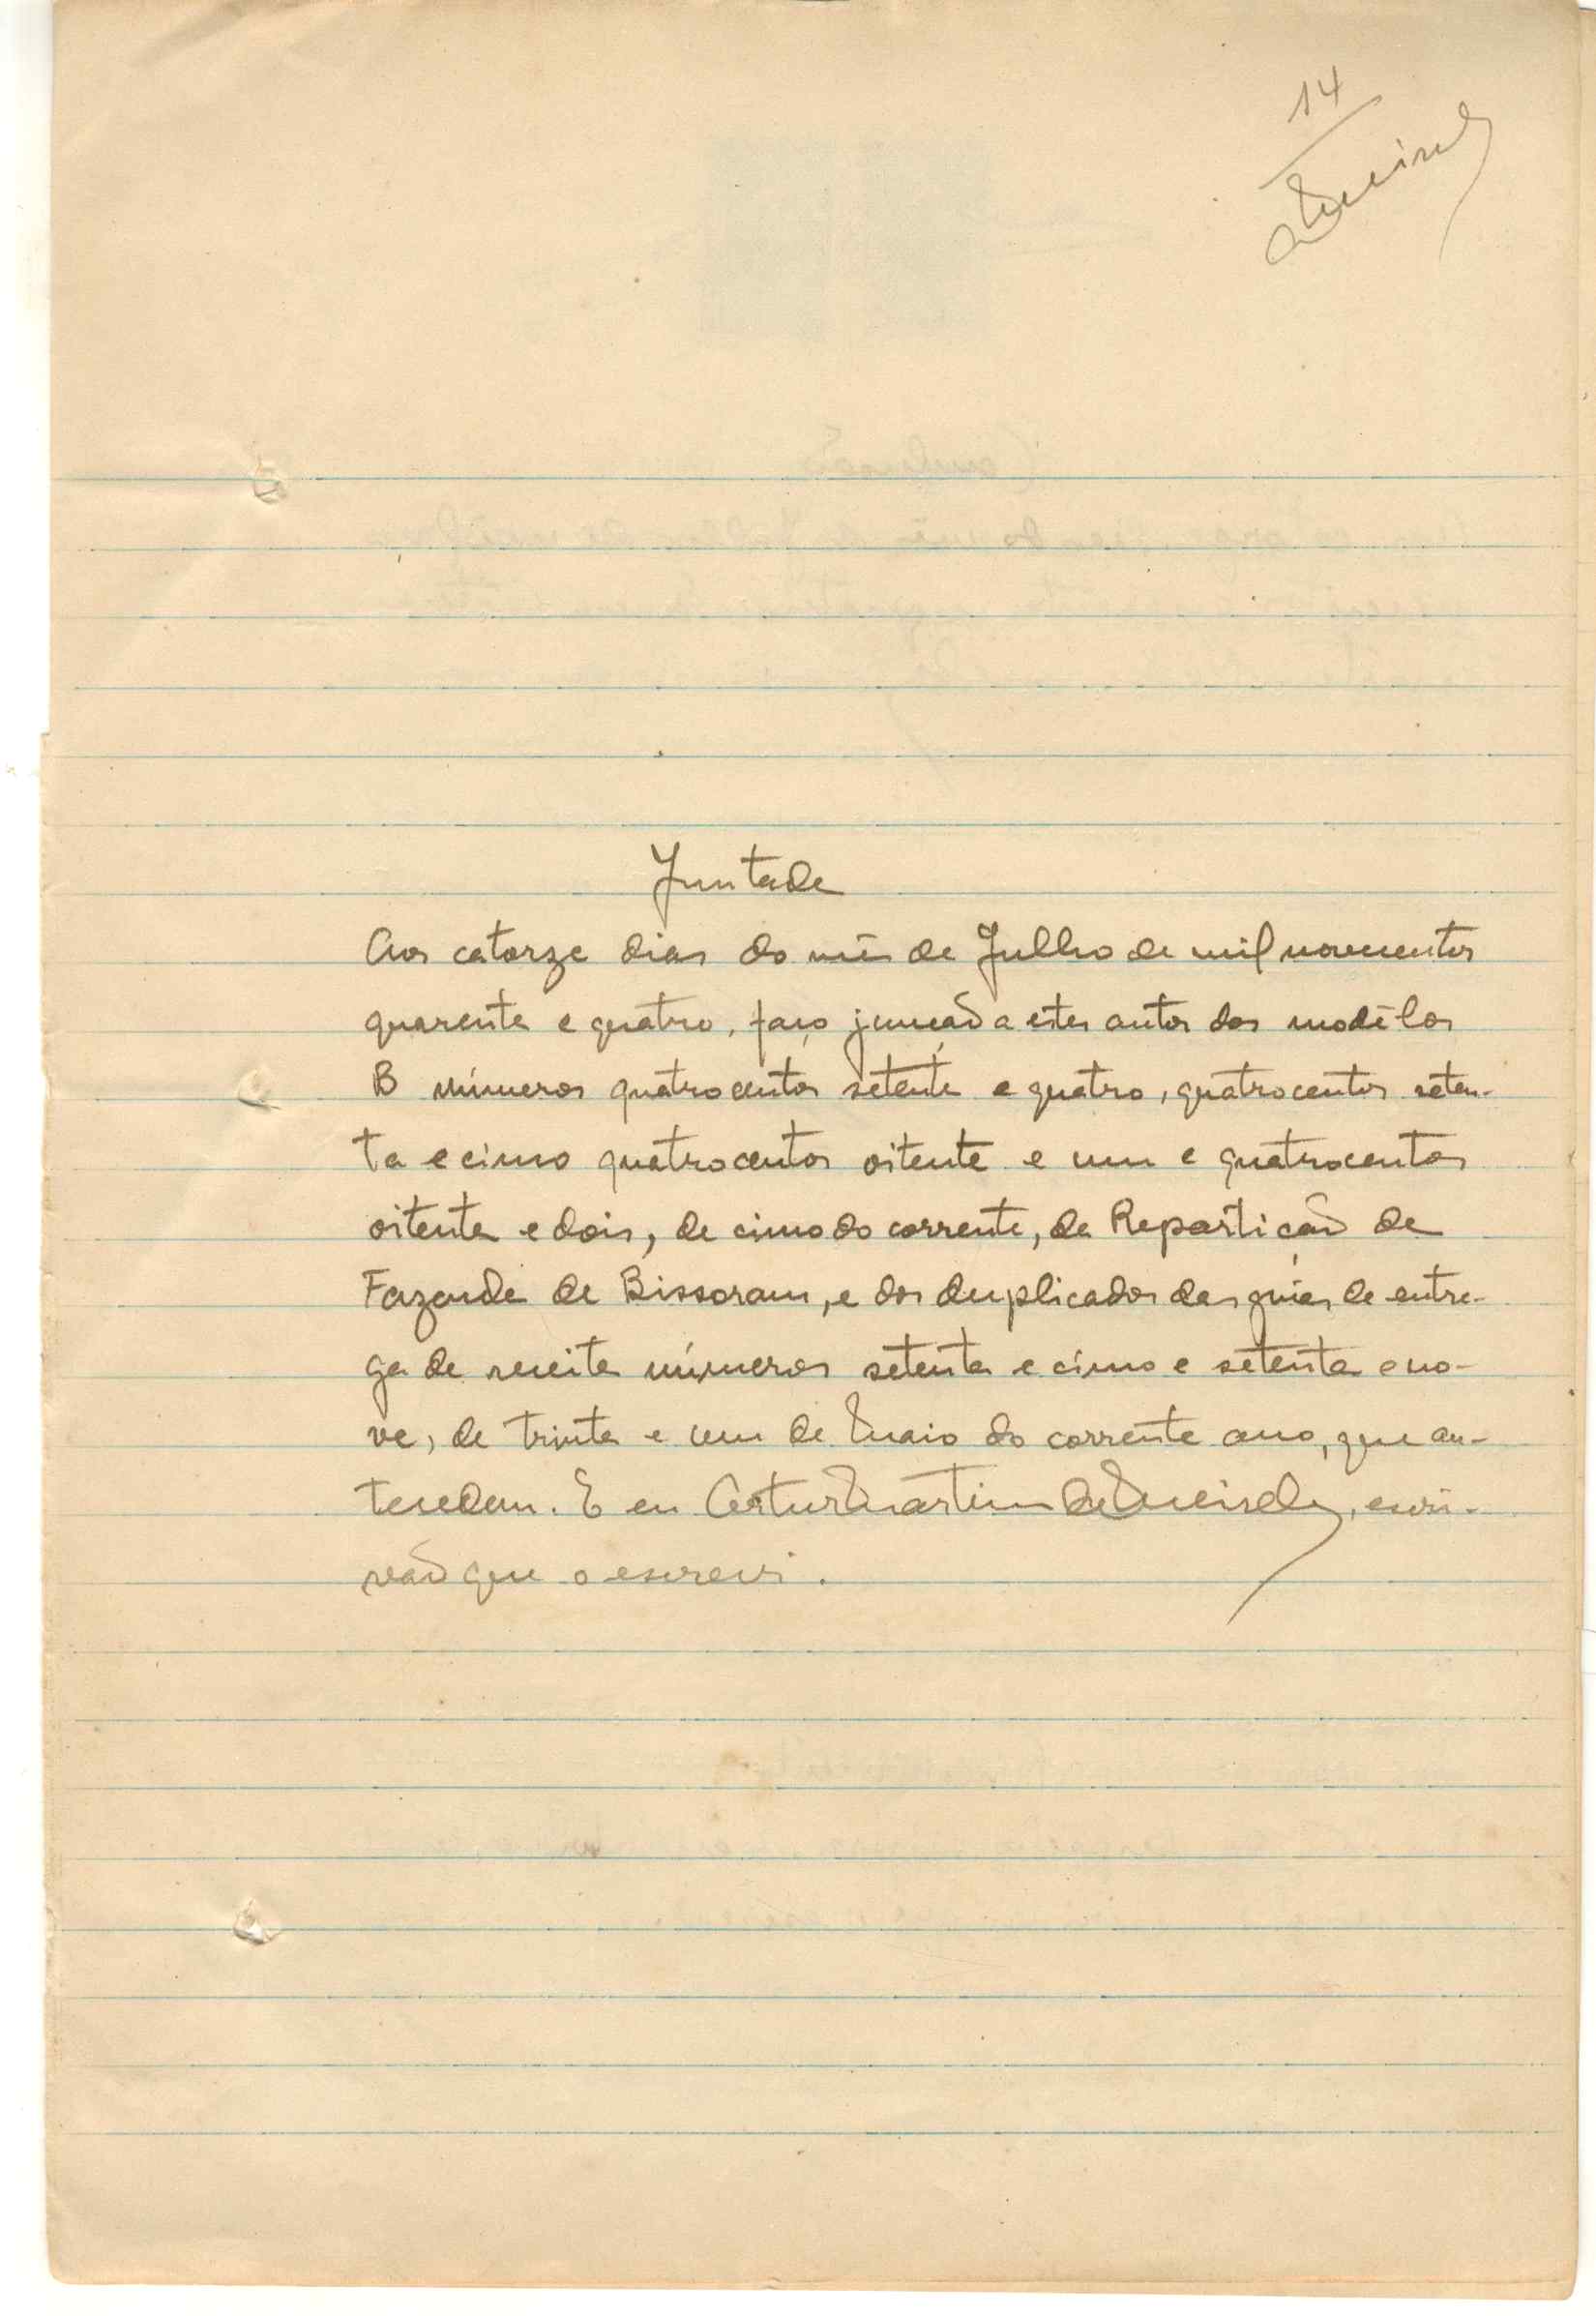 14
AMeireles
Juntada
Aos catorze dias do mês de Julho de mil novecentos
quarenta e quatro, faço junção a estes autos dos modêlos
B números quatrocentos setenta e quatro, quatrocentos seten-
ta e cinco quatrocentos oitenta e um e quatrocentos
oitenta e dois, de cinco do corrente, da Repartição de
Fazenda de Bissoram, e dos duplicados das guias de entre-
ga de receita números setenta e cinco e setenta e no-
ve, de trinta e um de Maio do corrente ano, que an-
tecedem. E eu Artur Martins de Meireles, escri-
vão que o escrevi.